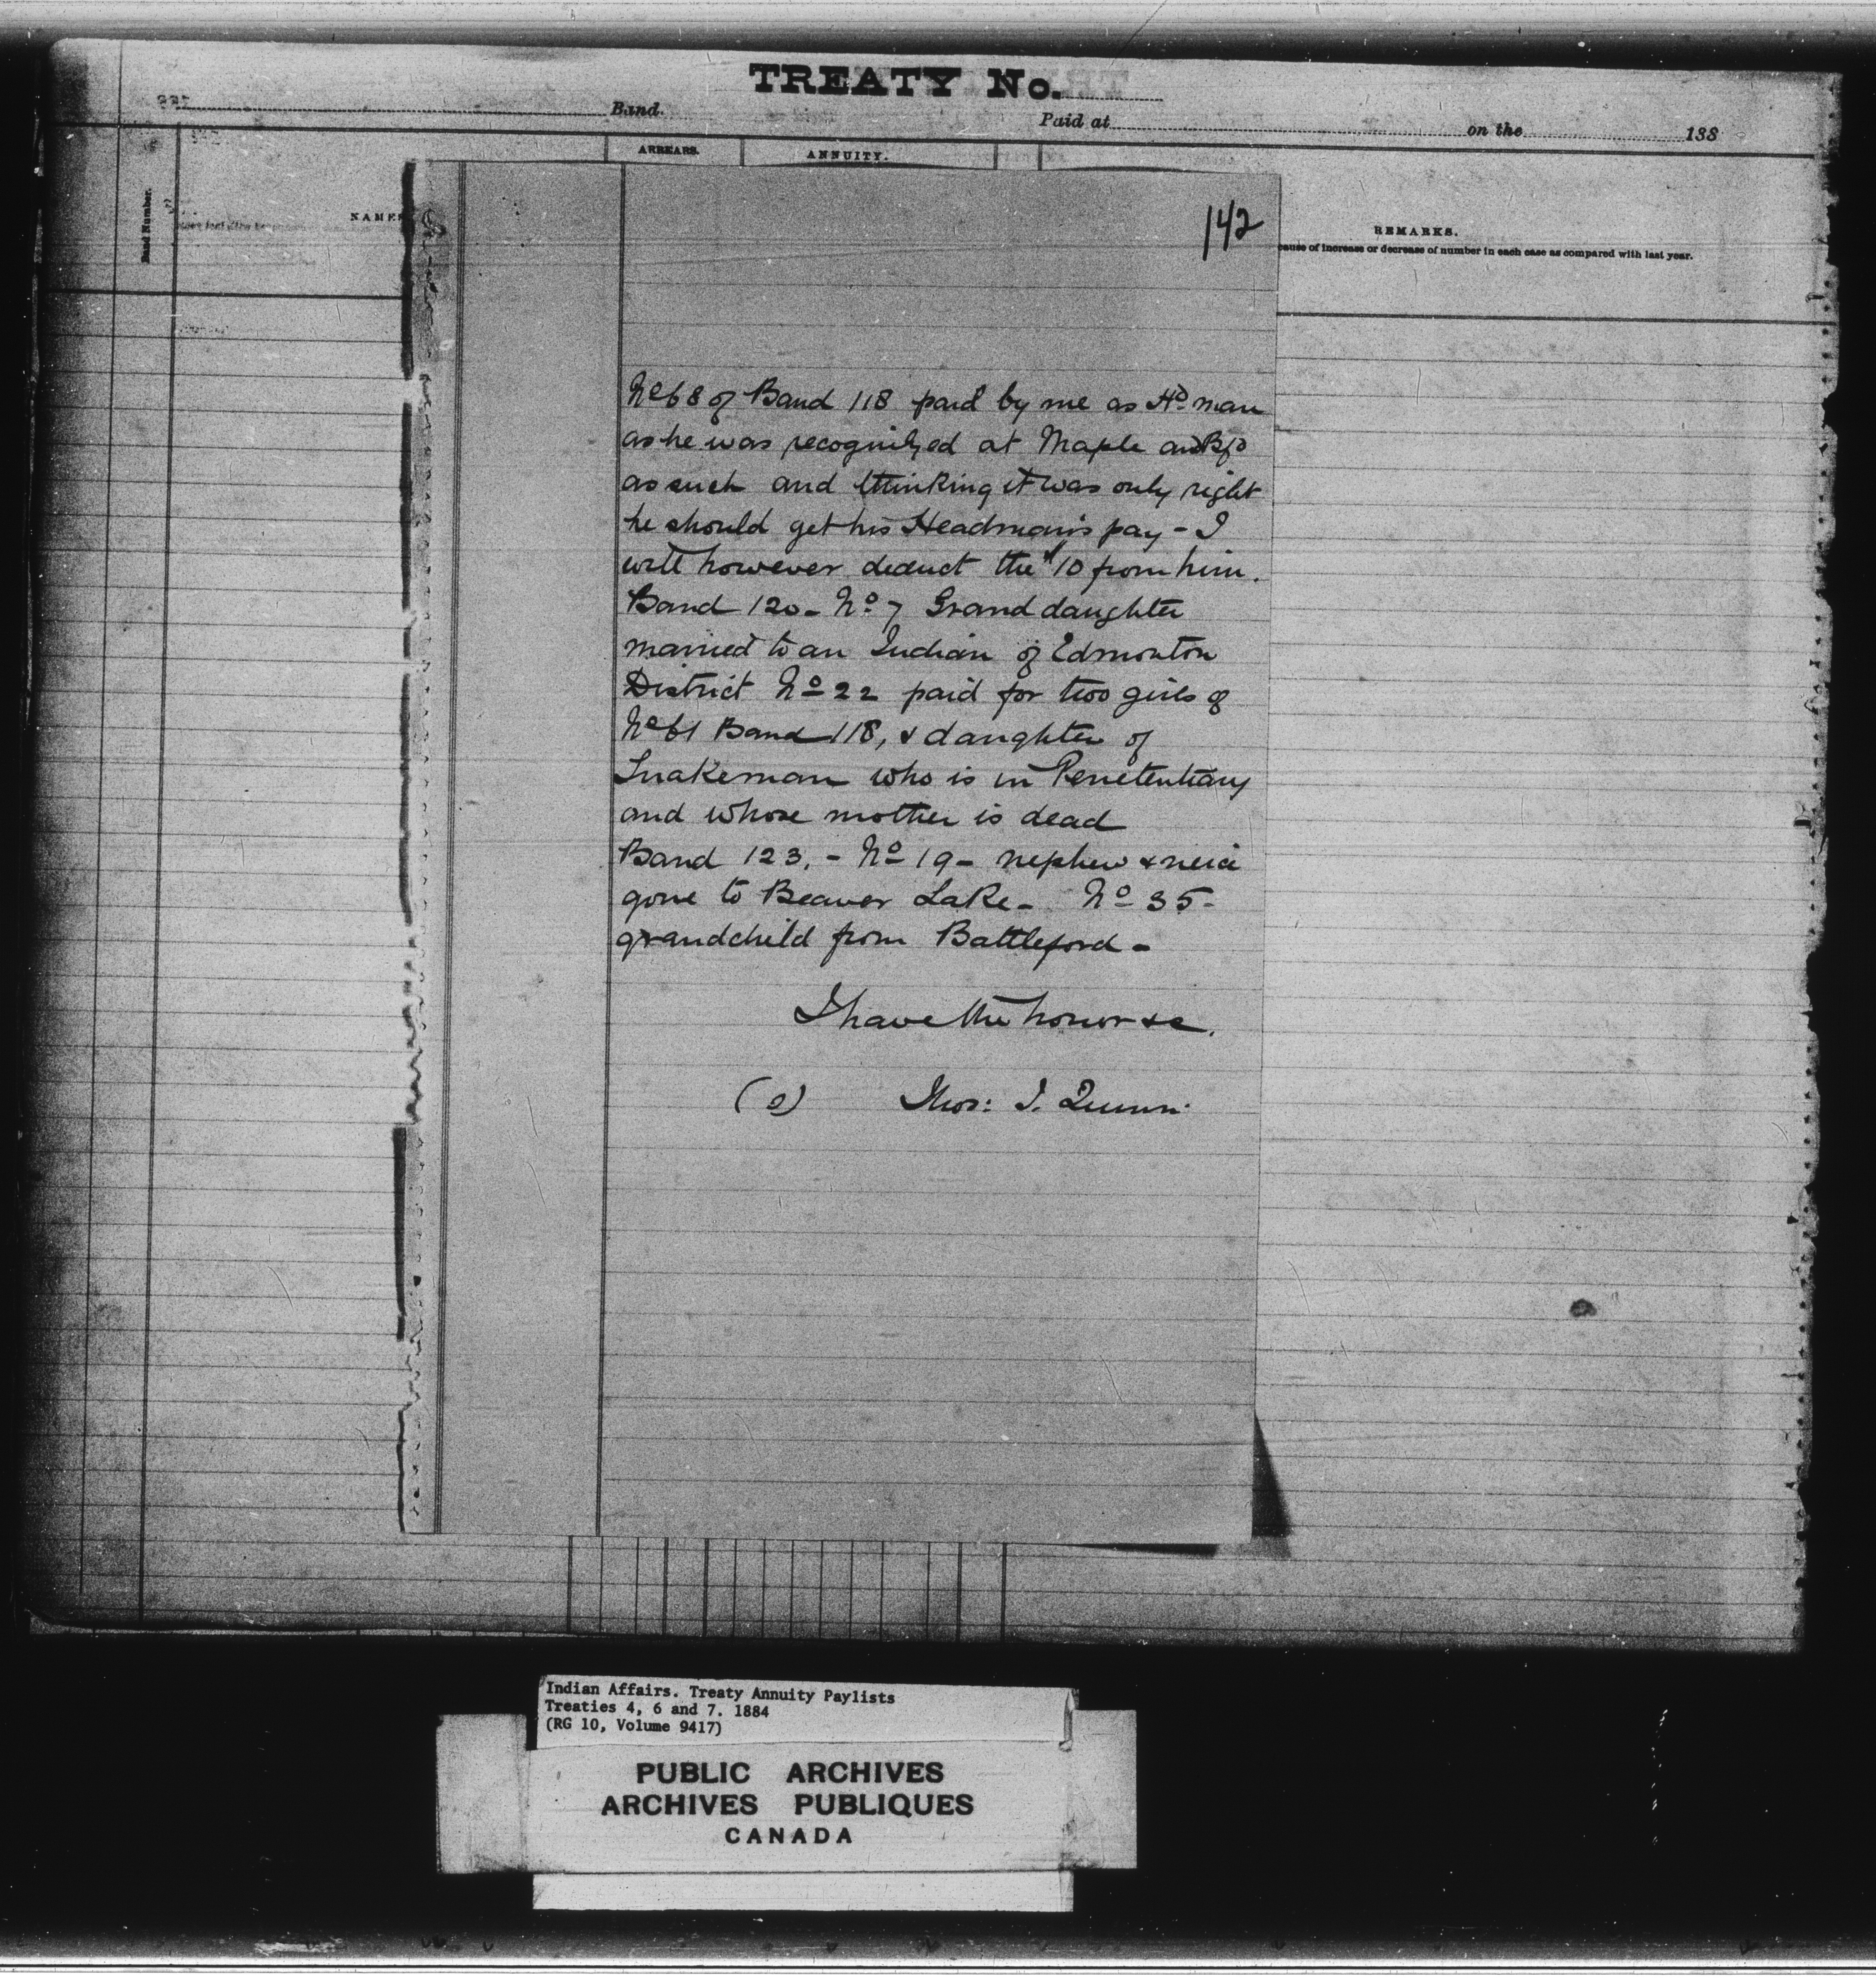 TREATY No.
Band.
Paid at
on the
188
ARREARS.
ANNUITY.
Band Number.
NAMES
REMARKS.
cause of increase or decrease of number in each case as compared with last year.
142
No 68 of Band 118 paid by me as Hd man
as he was recognized at Maple and Bfd
as such and thinking it was only right
he should get his Headman's pay - I
will however deduct the $10 from him.
Band 120 - No 7 Grand daughter
married to an Indian of Edmonton
District No 22 paid for two girls of
No 61 Band 118, & daughter of
Snakeman who is in Penetentiary
and whose mother is dead
Band 123, - No 19 - nephew & neice
gone to Beaver Lake - No 35 -
grandchild from Battleford -
I have the honor &c.
(s) Thos: T. Quinn.
Indian Affairs. Treaty Annuity Paylists
Treaties 4, 6 and 7. 1884
(RG 10, Volume 9417)
PUBLIC ARCHIVES
ARCHIVES PUBLIQUES
CANADA